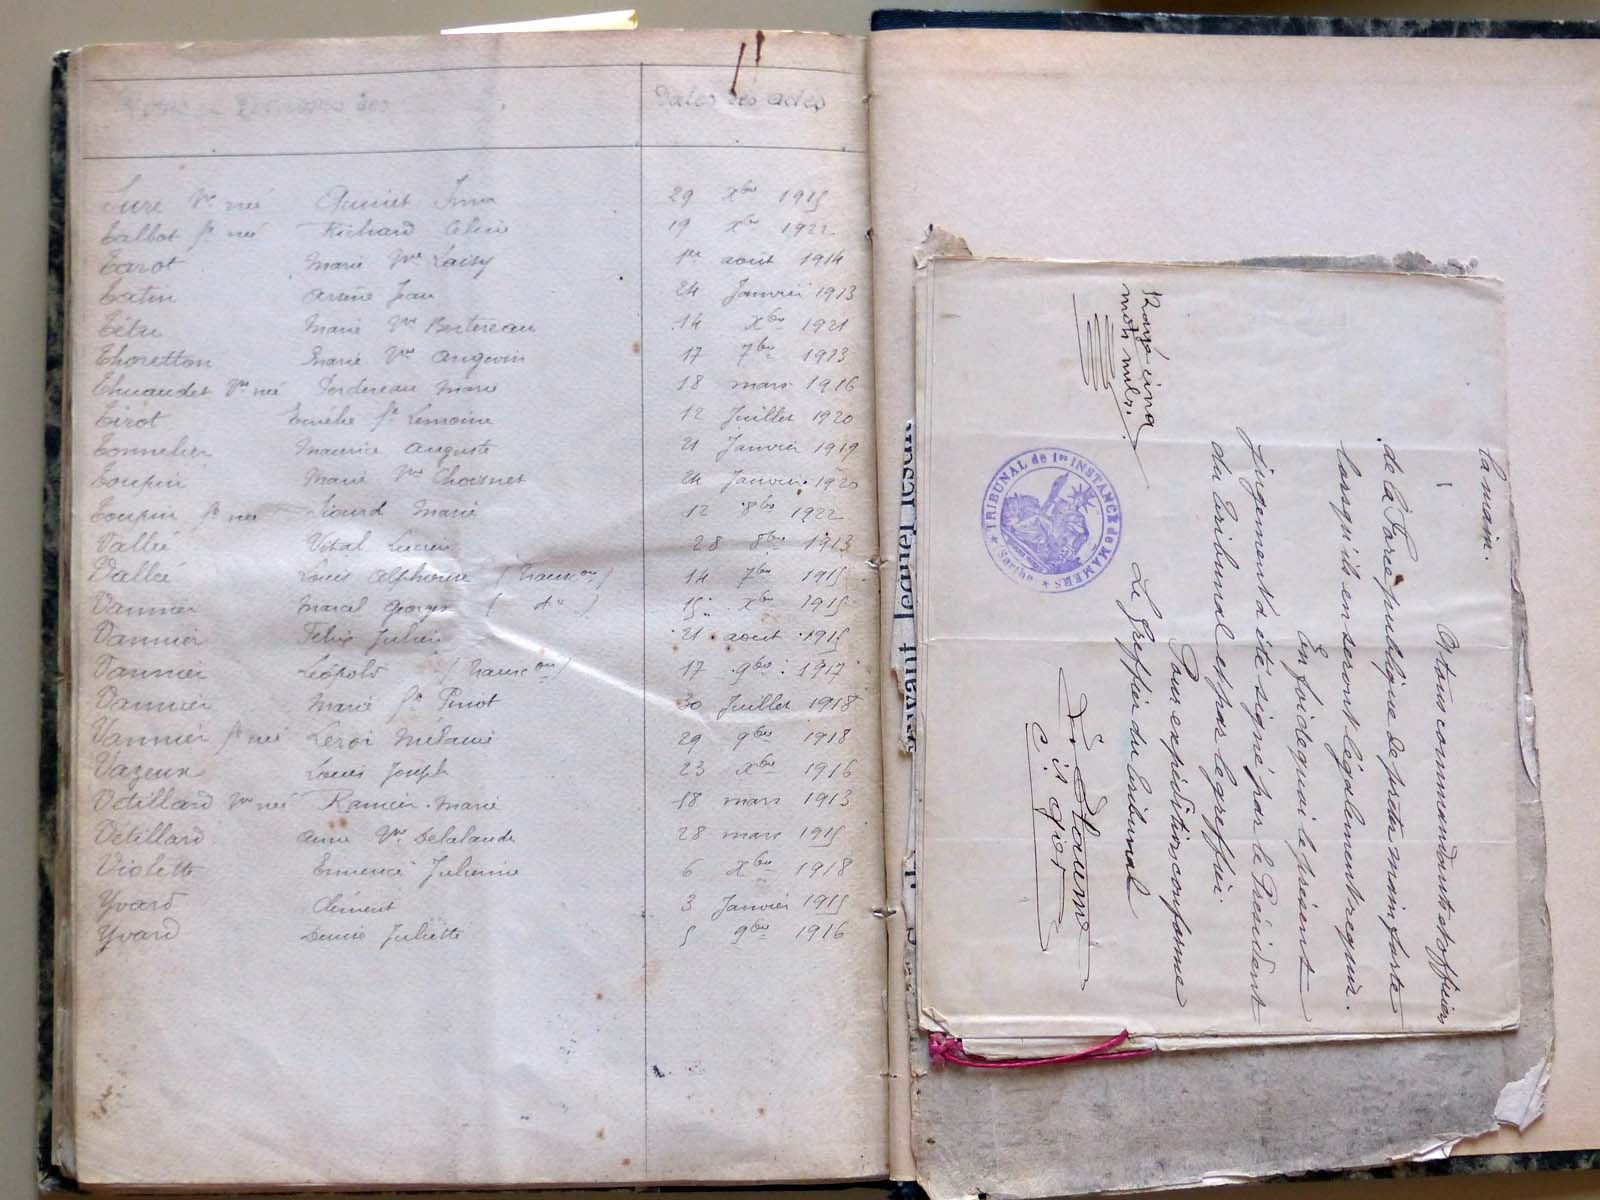 Noms et Prénoms des
Dates des actes
Suré Vve née Quinet Irma 29 Xbre 1915
Talbot fe née Richard Celine 19 Xbre 1922
Tarot Marie Vve Laisy 1er aout 1914
Tatin Arsène Jean 24 Janvier 1913
Tétu Marie Vve Bertereau 14 Xbre 1921
Thoretton Marie Vve Angevin 17 7bre 1923
Vve née Marie 18 mars 1916
Tirot Emélie fe Lemoine 12 Juillet 1920
Tonnelier Maurice Auguste 21 Janvier 1919
Toupin Marie Vve Choisnet 24 Janvier 1920
Toupin fe née Sicard Marie 12 8bre 1922
Vallée Vital Lucien 28 8bre 1913
Vallée Louis Alphonse (Transon) 14 7bre 1915
Vannier Marcel Georges (do) 15 Xbre 1915
Vannier Félix Julien 21 aout 1915
Vannier Léopold (Transon) 17 9bre 1917
Vannier Marie fe Pinot 30 Juillet 1918
Vannier fe née Leroi Mélanie 29 9bre 1918
Vazeux Louis Joseph 23 Xbre 1916
Vétillard Vve née Ramier Marie 18 mars 1913
Vétillard Anne Vve Delalande 28 mars 1915
Violette Julienne 6 Xbre 1918
Yvard Clément 3 Janvier 1915
Yvard Denise Juliette 5 9bre 1916
la main.
A tous commandants et officiers
de la Force publique de prêter main forte
lorsqu'ils en seront légalement requis.
En foi de quoi le présent
jugement a été signé par le Président
du Tribunal et par le greffier.
Pour expédition conforme
Le Greffier du Tribunal
Rayé cinq
mots nuls.
TRIBUNAL de 1re INSTANCE de MAMERS
* Sarthe *
servant